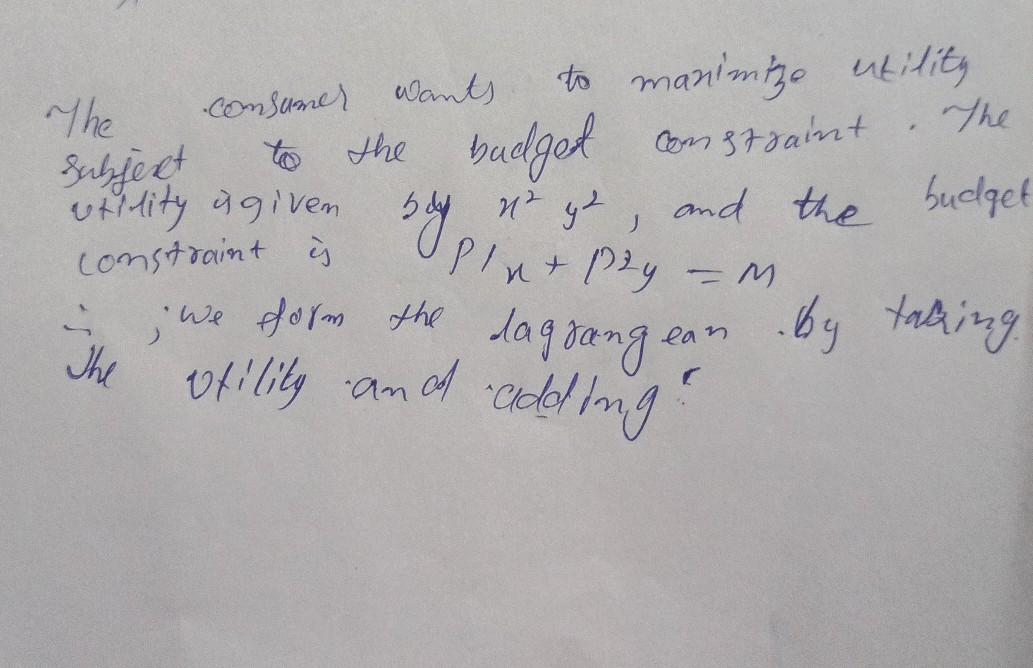 The consumer wants to maximize utility
subject to the budget constraint. The
utility is given by x² y², and the budget
constraint is P1x + P2y = M
; we form the lagrangean by taking
the utility and adding